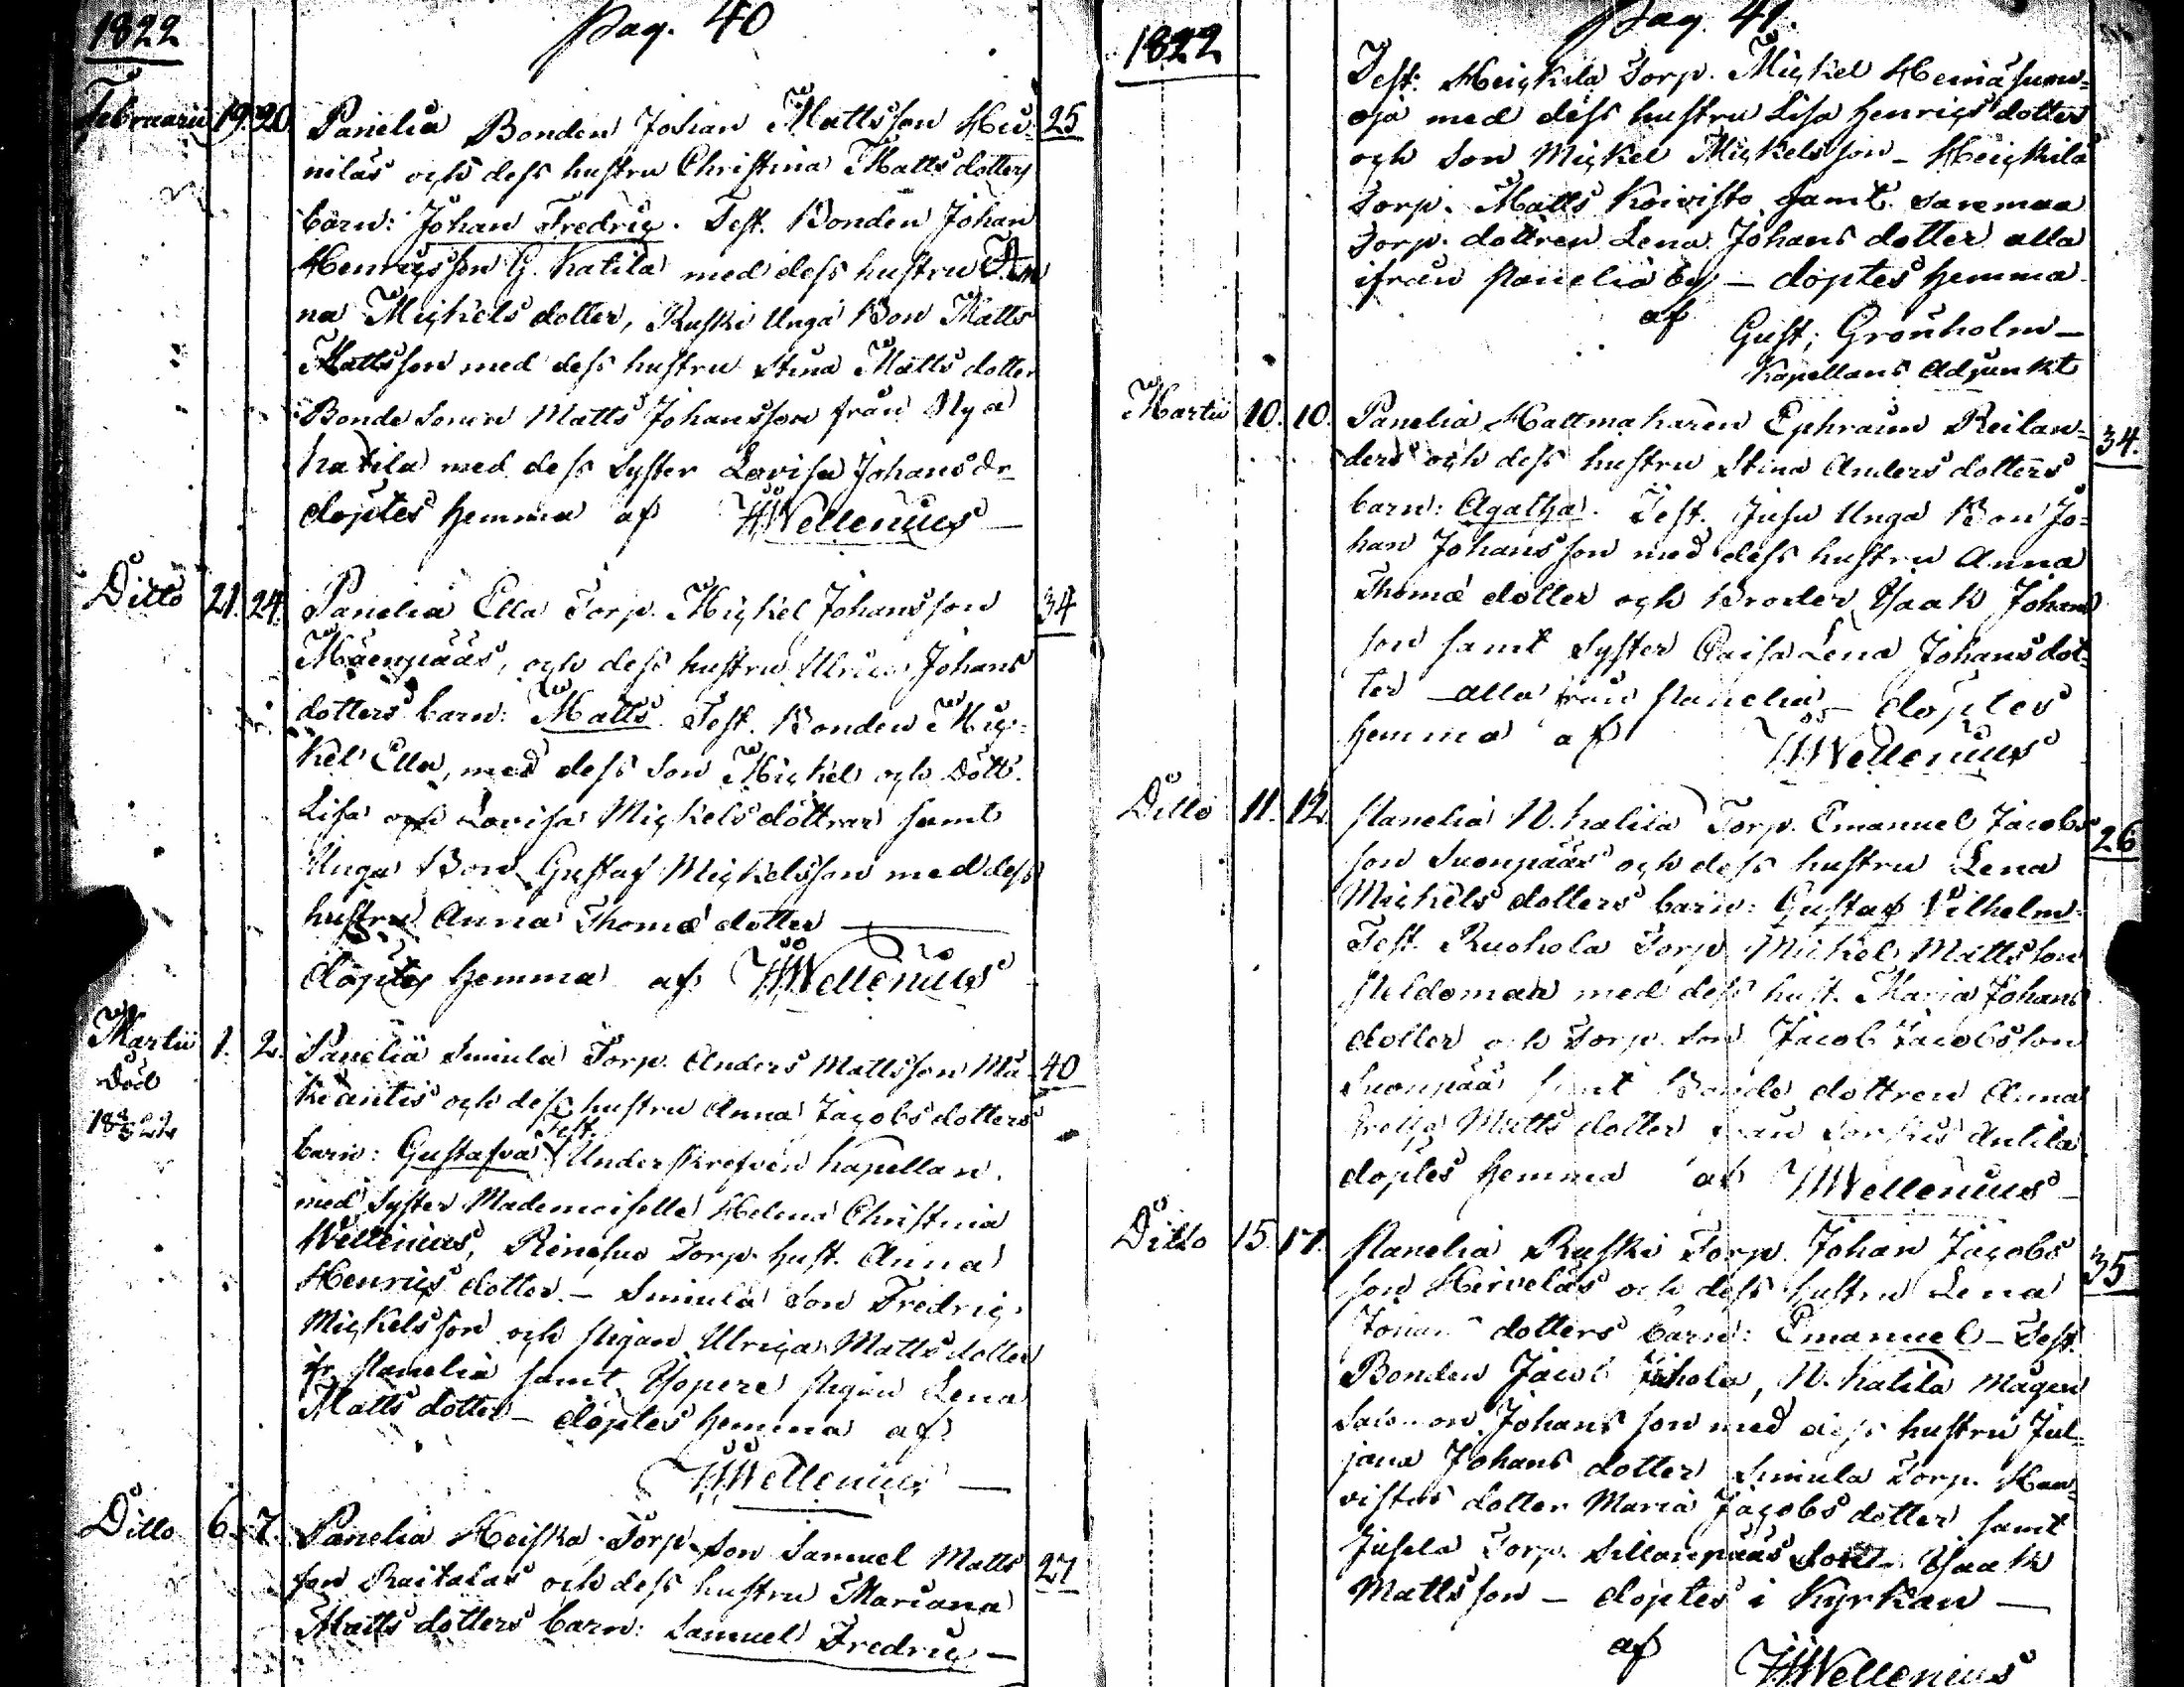 1822
Pag. 40
Februarii 19. 20. Panelia Bonden Johan Mattsson Hu- 25
nilas och dess hustru Christina Matts dotters
barn: Johan Fredric. Test. Bonden Johan
Henricsson G. Katila med dess hustru An
na Mickels dotter, Ruski Unga Bon Matts
Mattsson med dess hustru Stina Matts dotter
Bonde Sonen Matts Johansson från Nya
katila med dess Syster Lovisa Johans dr
döptes hemma af Wellenius
Ditto 21. 24. Panelia Ella Torp. Mickel Johansson 34
Mäenpääs, och dess hustru Johans
dotters barn: Matts Test. Bonden Mic-
kel Ella, med dess Son Mickel och Dött.
Lisa och Lovisa Mickels döttrar samt
Unga Bon Gustaf Mickelsson med dess
hustru Anna Thomæ dotter
döptes hemma af Wellenius
Martii 1. 2. Panelia Simula Torp. Anders Mattsson Mä 40
Död
kiäntis och dess hustru Anna Jacobs dotters
Test.
barn: Gustafva Underskrefven Kapellan
med Syster Mademoiselle Helena Christina
Wellenius, Torp. hust. Anna
Henrics dotter. - Simula Son Fredric
Mickelsson och Pigan Ulrica Matts dotter
fr. Panelia samt Pigan Lena
Matts dotter - döptes hemma af
Wellenius
Ditto 6. 7. Panelia Heiska Torp. Son Samuel Matts 27
son Raitalas och dess hustru Mariana
Matts dotters barn: Samuel Fredric
1822
Pag. 41.
Test: Heickila Torp. Mickel Heinäsuon-
oja med dess hustru Lisa Henrics dotter
och Son Mickel Mickelsson - Heickilä
Torp. Matts Koivisto samt Saremaa
Torp. dottren Lena Johans dotter alla
ifrån Panelia by - döptes hemma
af Gust: Grönholm
Kapellans Adjunkt
Martii 10. 10. Panelia Hattmakaren Ephraim Reilan- 34.
ders och dess hustru Stina Anders dotters
barn: Agatha. Test. Unga Bon Jo-
han Johansson med dess hustru Anna
Thomæ dotter och Broder Isaak Johans
son samt Syster Caisa Lena Johansdot-
ter alla från Panelia - döptes
hemma af Wellenius
Ditto 11. 12. Panelia N. Katila Torp. Emanuel Jacobs 26
son Suonpääs och dess hustru Lena
Mickels dotters barn: Gustaf Vilhelm
Test. Ruohola Torp. Mickel Mattsson
Peldomaa med dess hust. Maria Johans
dotter och Torp. Son Jacob Jacobsson
Suonpää samt Bonde dottren Anna
Matts dotter från Antila
döptes hemma af Wellenius
Ditto 15. 17. Panelia Ruski Torp. Johan Jacobs 35
son Hirveläs och dess hustru Lena
Johans dotters barn: Emanuel - Test.
Bonden Jacob N. Katila Mågen
Salomon Johansson med dess hustru Jul-
jana Johans dotter Simula Torp. Haa-
vistos dotter Maria Jacobs dotter samt
Torp. Sillanpääs Son Isaak
Mattsson - döptes i Kyrkan
af Wellenius